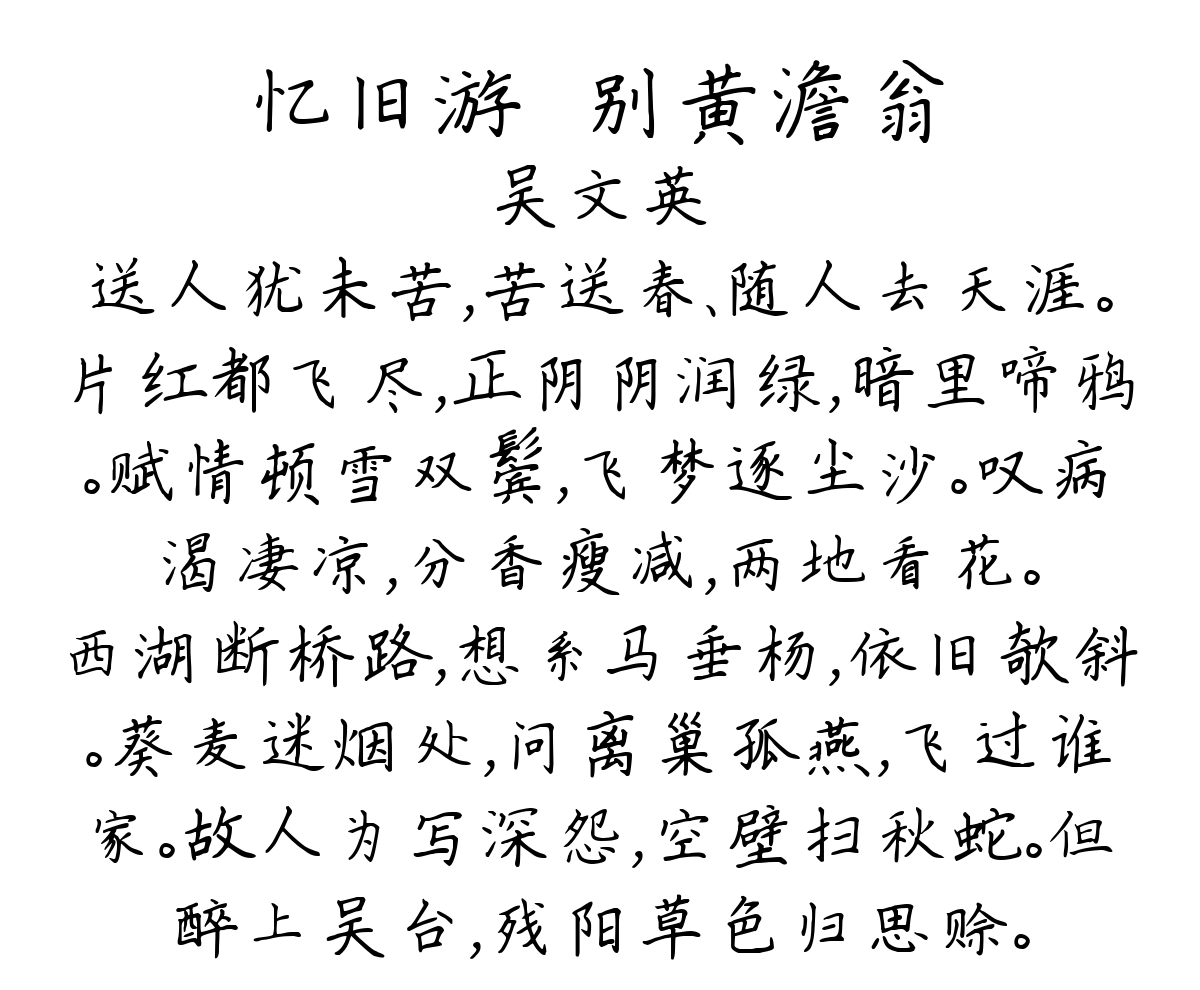 忆旧游 别黄澹翁
吴文英
送人犹未苦,苦送春、随人去天涯。
片红都飞尽,正阴阴润绿,暗里啼鸦
。赋情顿雪双鬓,飞梦逐尘沙。叹病
渴凄凉,分香瘦减,两地看花。
西湖断桥路,想系马垂杨,依旧欹斜
。葵麦迷烟处,问离巢孤燕,飞过谁
家。故人为写深怨,空壁扫秋蛇。但
醉上吴台,残阳草色归思赊。